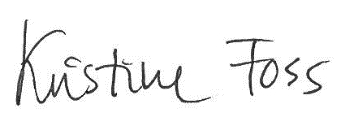 Kristine Foss